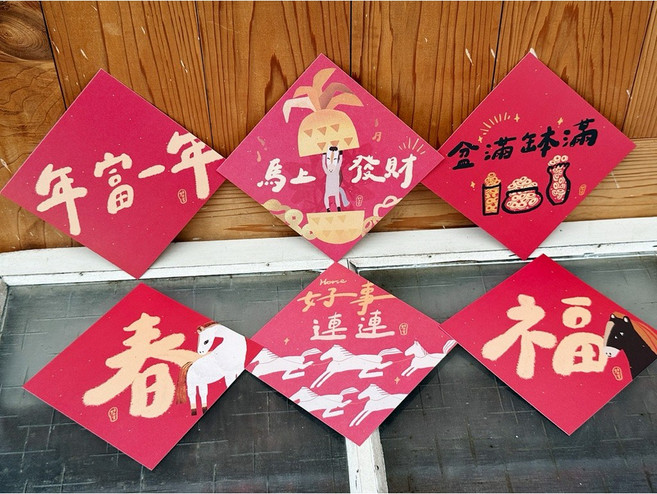 年富一年
馬上發財
盆滿缽滿
春
Horse
好事
連連
福